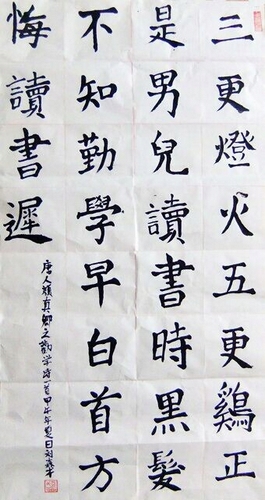 三更燈火五更鷄正
是男兒讀書時黑髮
不知勤學早白首方
悔讀書遲
唐人顏真卿之勸学诗一首甲午年夏日